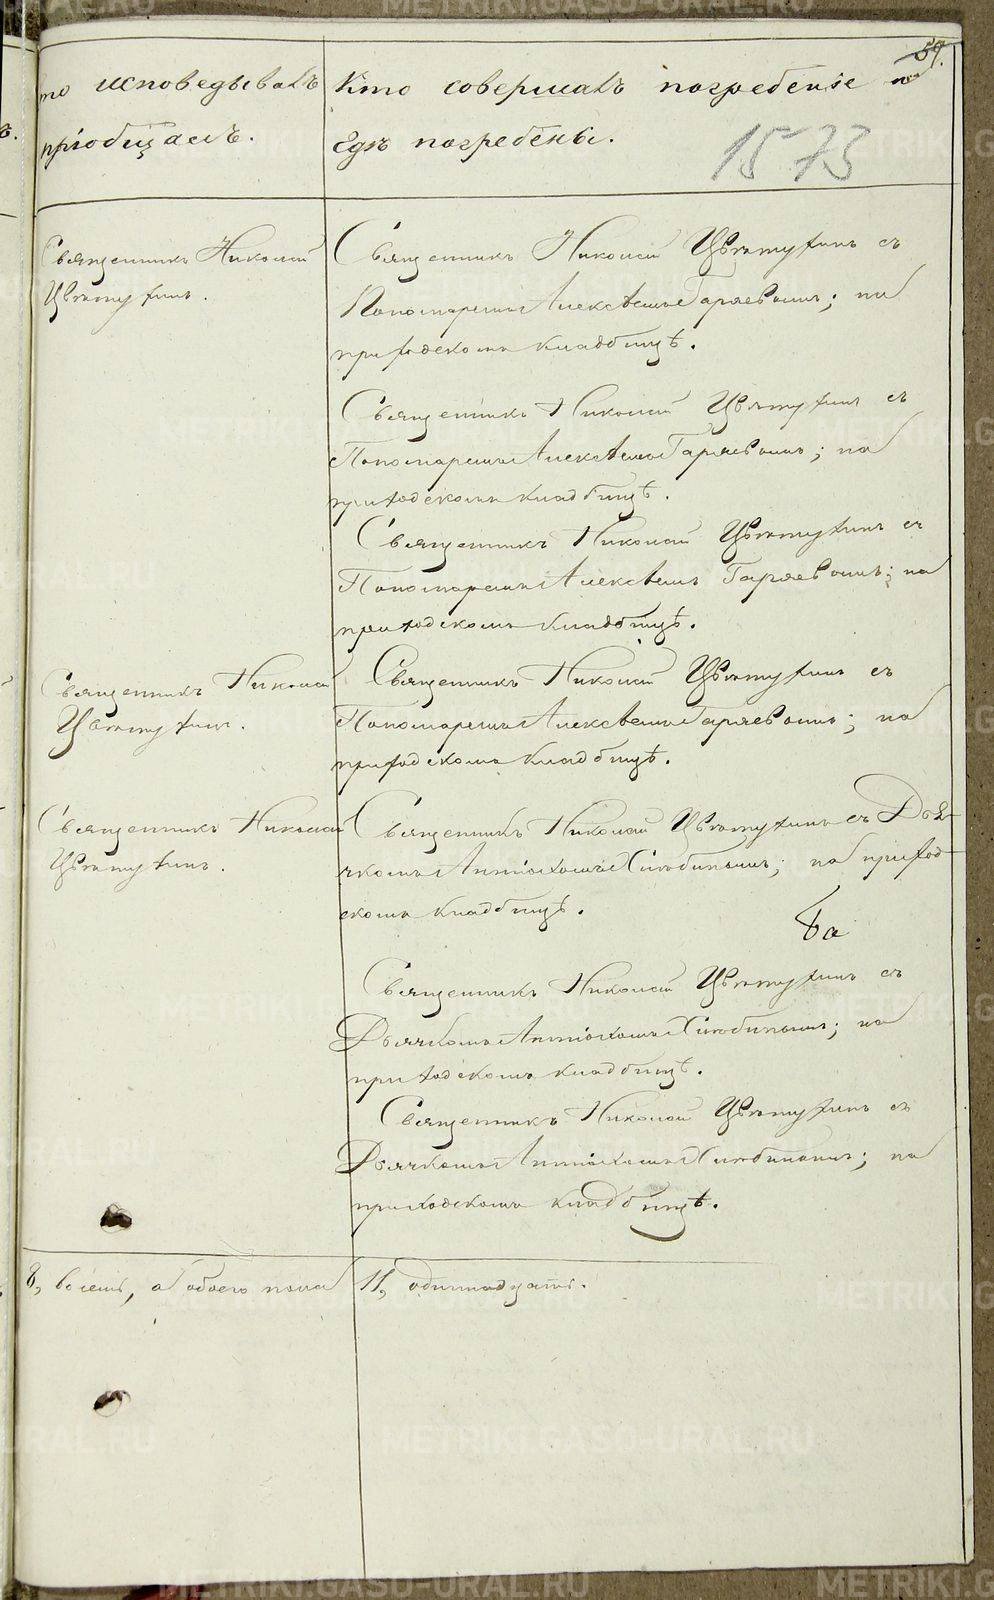 59.
то исповедывалъ
пріобщалъ.
Кто совершалъ погребеніе и
гдѣ погребены.
1573
Священникъ Николай
Цвѣтухинъ.
Священникъ Николай Цвѣтухинъ съ
Пономаремъ Алексѣемъ Гаряевымъ; на
приходскомъ кладбищѣ.
Священникъ Николай Цвѣтухинъ съ
Пономаремъ Алексѣемъ Гаряевымъ; на
приходскомъ кладбищѣ.
Священникъ Николай Цвѣтухинъ съ
Пономаремъ Алексѣемъ Гаряевымъ; на
приходскомъ кладбищѣ.
Священникъ Николай
Цвѣтухинъ.
Священникъ Николай Цвѣтухинъ съ
Пономаремъ Алексѣемъ Гаряевымъ; на
приходскомъ кладбищѣ.
Священникъ Николай
Цвѣтухинъ.
Священникъ Николай Цвѣтухинъ съ Дья-
чкомъ Антіохомъ Хлюбинымъ; на приход-
скомъ кладбищѣ.
Священникъ Николай Цвѣтухинъ съ
Дьячкомъ Антіохомъ Хлюбинымъ; на
приходскомъ кладбищѣ.
Священникъ Николай Цвѣтухинъ съ
Дьячкомъ Антіохомъ Хлюбинымъ; на
приходскомъ кладбищѣ.
8, восемь, а обоего пола 11, одиннадцать.
METRIKI.GASO-URAL.RU